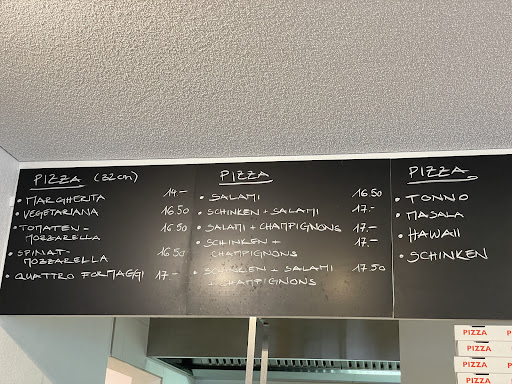 PIZZA (32cm)
• MARGHERITA 14.–
• VEGETARIANA 16.50
• TOMATEN- MOZZARELLA 16.50
• SPINAT- MOZZARELLA 16.50
• QUATTRO FORMAGGI 17.–
PIZZA
• SALAMI 16.50
• SCHINKEN + SALAMI 17.–
• SALAMI + CHAMPIGNONS 17.–
• SCHINKEN + CHAMPIGNONS 17.–
• SCHINKEN + SALAMI + CHAMPIGNONS 17.50
PIZZA
• TONNO
• MASALA
• HAWAII
• SCHINKEN
PIZZA
PIZZA
PIZZA
PIZZA